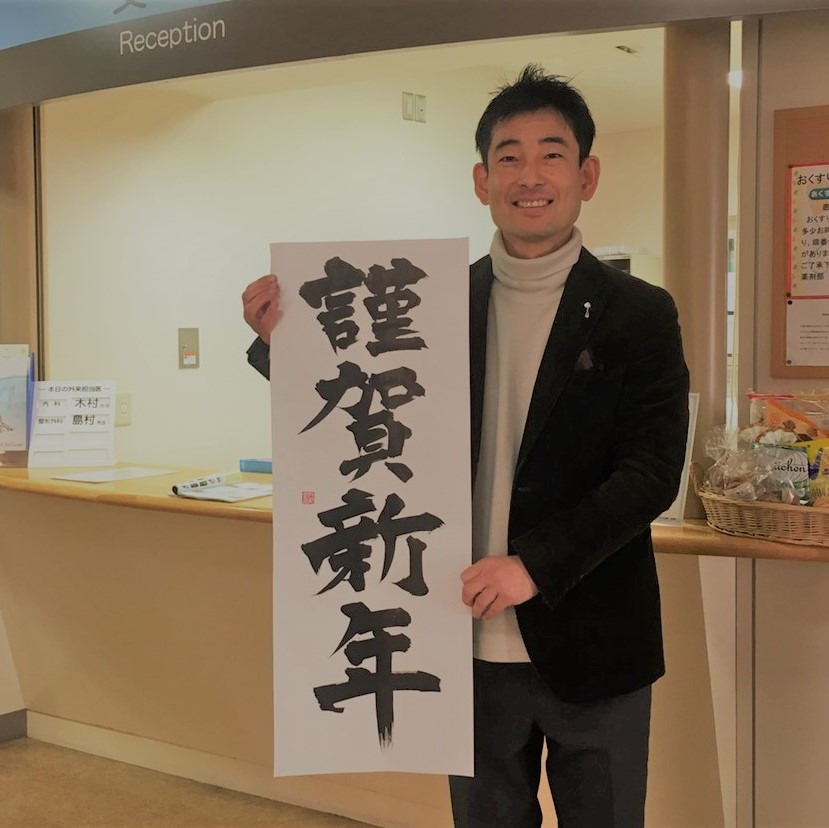 Reception
謹賀新年
本日の外来担当医
内科 木村
整形外科 島村
おくすり
おくす
多少お
り、順番
がありま
ご了承下
薬剤部